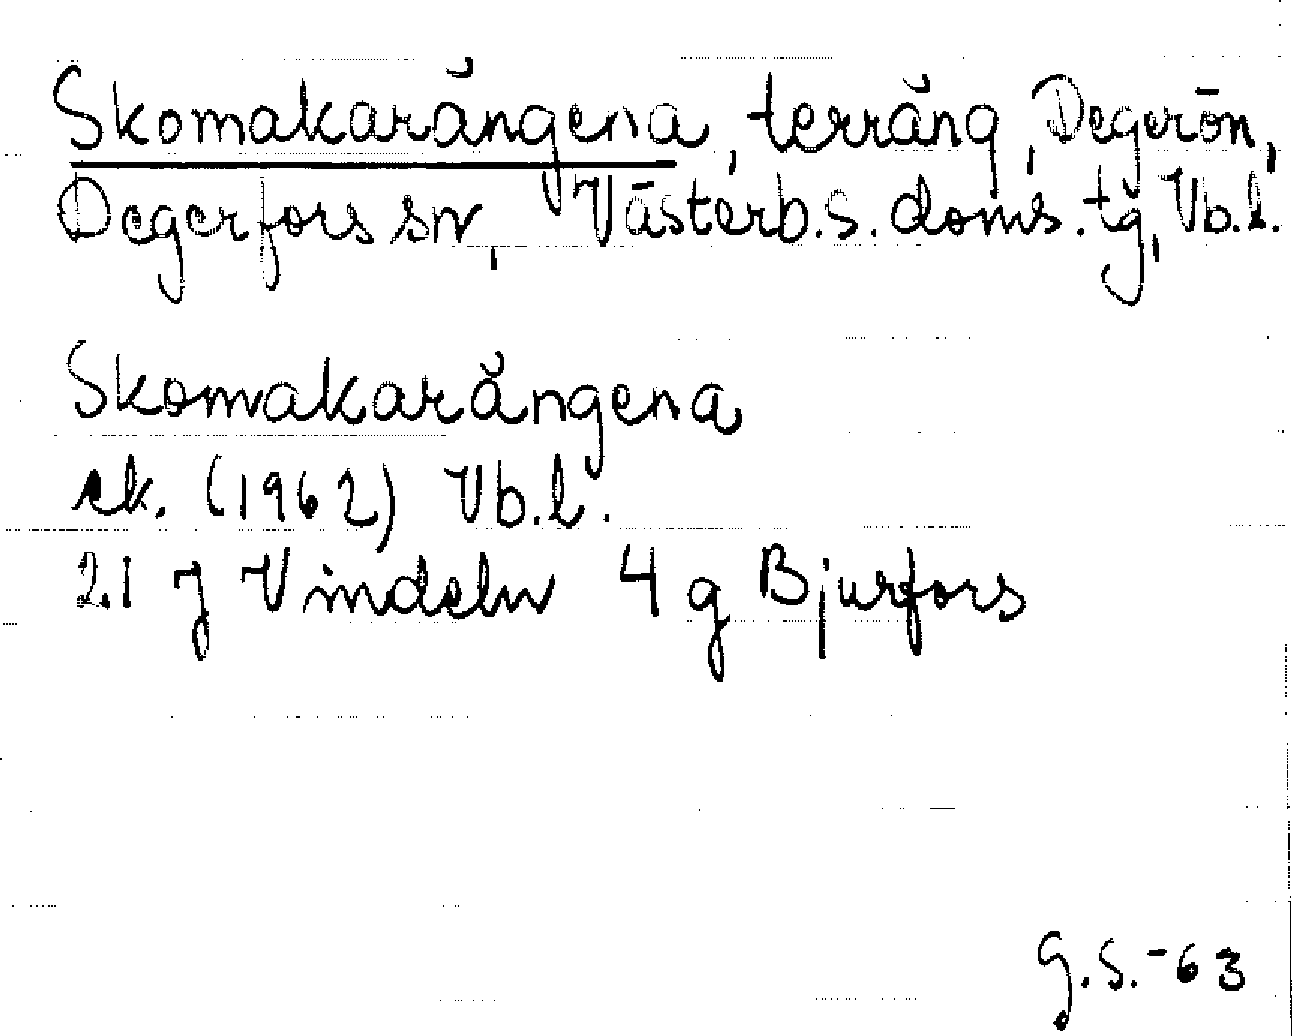 Skomakarängena, terräng, Degerön,
Degerfors sn, Västerb. s. doms. tg, Vb. l.
Skomakarängena
ek. (1962) Vb. l.
21 J Vindeln 4 g Bjurfors
G. S. -63